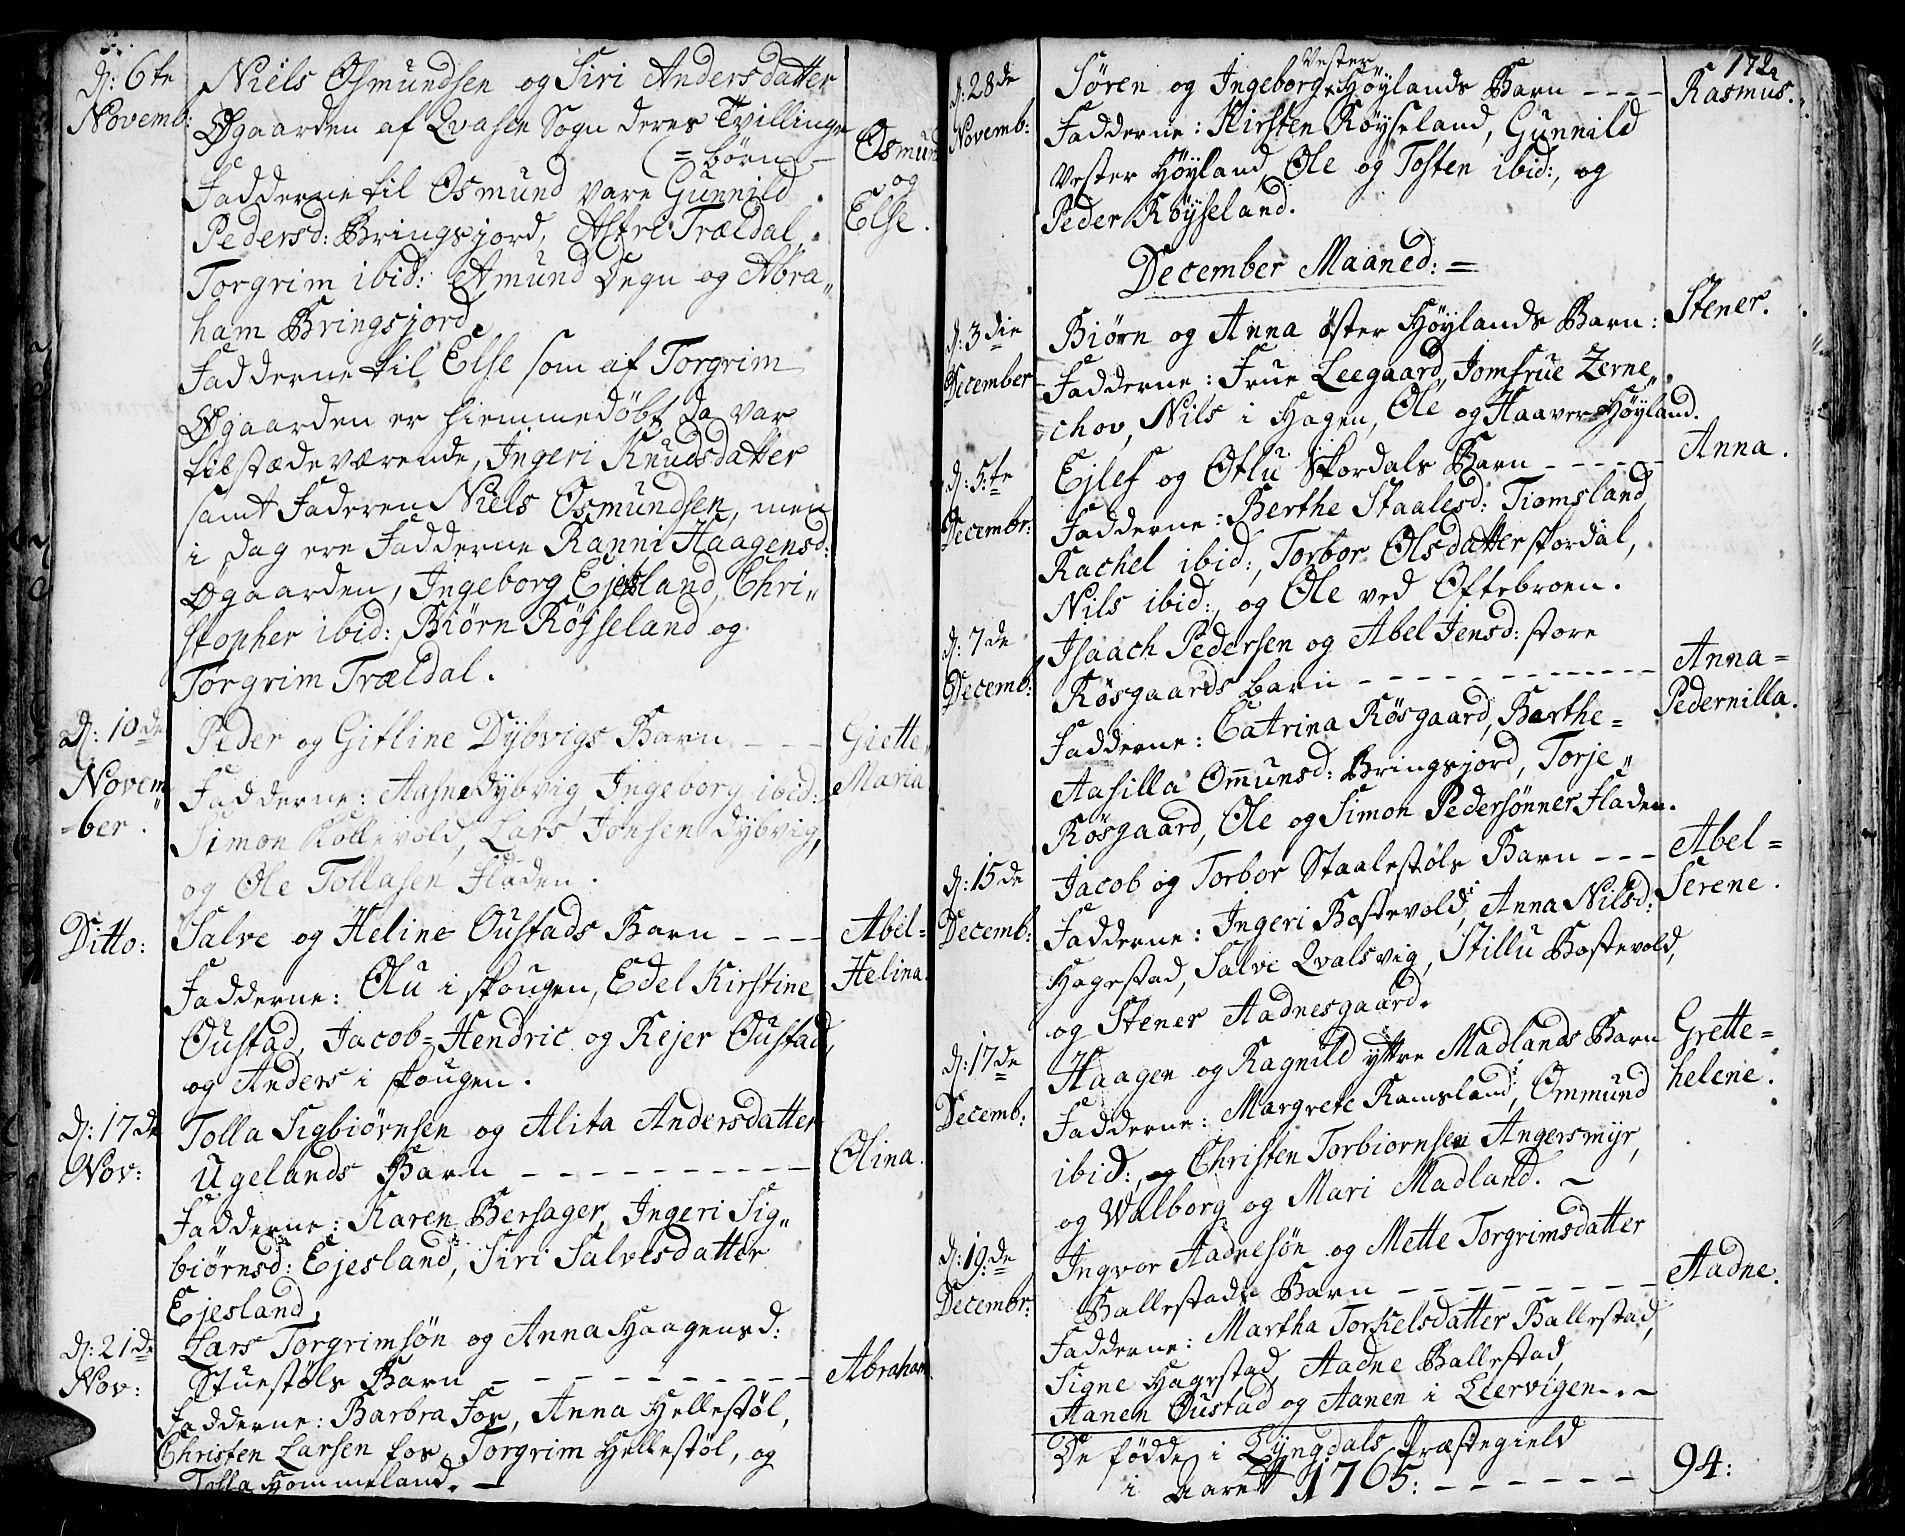 d: 6te Niels Osmundsen og Siri Andersdatter
Novemb: Øgaarden af Qvasen Sogn deres Tvillinge
(= børn - Osmund
Fadderne til Osmund vare Gunnild og
Pedersd: Bringsjord, Astre Trældal, Else.
Torgrim ibid: Amund Degn og Abra„
ham Bringsjord.
Fadderne til Else som af Torgrim
Øgaarden er hiemmedøbt da var
tilstædeværende, Ingeri Knudsdatter
samt Faderen Niels Osmundsen, men
i dag ere Fadderne Ranni Haagensd:
Øgaarden, Ingeborg Ejesland, Chri„
stopher ibid: Biørn Röyseland og
Torgrim Trældal.
d: 10de Peder og Gitline Dÿbvigs Barn - - - Giette„
Novem„ Fadderne: Aasne Dÿbvig, Ingeborg ibid: Maria.
-ber. Simon Kollevold, Lars Jonsen Dÿbvig,
og Ole Tollasen Fladen.
Ditto: Salve og Heline Oustads Barn - - - - Abel=
Fadderne: Olu i skougen, Edel Kirstine Helina.
Oustad, Jacob=Hendric og Rejer Oustad,
og Anders i skougen.
d: 17de Tolla Sigbiørnsen og Alita Andersdatter
Nov: Ugelands Barn - - - - - - - - - - Olina.
Fadderne: Karen Bersager, Ingeri Sig„
biørnsd: Ejesland, Siri Salvesdatter
Ejesland.
d: 21de Lars Torgrimsön og Anna Haagensd:
Nov: Stuestöls Barn - - - - - - - - - Abraham.
Fadderne: Barbra Fos, Anna Hellestöl,
Christen Larsen fos, Torgrim Hellestöl, og
Tolla Hommeland. -
172
d: 28de Søren og Ingeborg Vester Höylands Barn - - - - Rasmus.
Novemb: Fadderne: Kirsten Röyseland, Gunnild
Vester Höyland, Ole og Tosten ibid:, og
Peder Röyseland.
December Maaned: =
d: 3die Biörn og Anna öster Höylands Barn: Stener.
December Fadderne: Frue Leegaard, Jomfrue Zerne„
chov, Nils i Hagen, Ole og Haaver Höyland.
d: 5:te Ejlef og Otlu Skordals Barn - - - - - Anna.
Decembr: Fadderne: Berthe Staalesd: Tiomsland,
Rachel ibid:, Torbor Olsdatter skordal,
Nils ibid:, og Ole ved Oftebroen.
d: 7de Isaach Pedersen og Abel Jensd: store
Decemb: Rösgaards barn - - - - - - - - - - - - Anna=
Fadderne: Catrina Rösgaard, Berthe= Pedernilla.
Aasilla Ommunsd: Bringsjord, Torje„
Rösgaard, Ole og Simon Pedersönner Fladen.
d: 15de Jacob og Torbor Staalestöls Barn - - - Abel=
Decemb: Fadderne: Ingeri Bostevold, Anna Nilsd: Serene.
Hagestad, Salve Qvalsvig, Stillu Bostevold,
og Stener Aadnesgaard.
d: 17de Haagen og Ragnild ÿttre Madlands Barn Grette=
Decemb: Fadderne: Margrete Ramsland, Ommund helene.
ibid:, og Christen Torbiornsen Angersmÿr,
og Walborg og Mari Madland. -
d: 19:de Ingvor Aadnesön og Mette Torgrimsdatter
Decembr: Ballestads Barn - - - - - - - - Aadne.
Fadderne: Martha Torkelsdatter Ballestad,
Signe Hagestad, Aadne Ballestad,
Aanen Oustad og Aanen i Leervigen. - . -
De födde i Lÿngdals Præstegield
i Aaret 1765: - - - - - - 94: